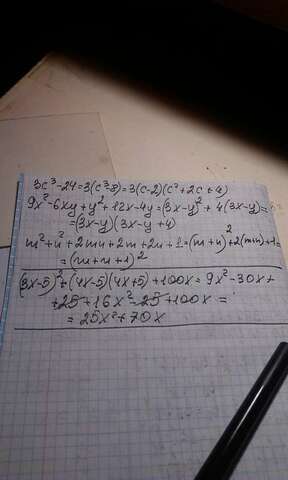 3c³-24=3(c³-8)=3(c-2)(c²+2c+4)
9x²-6xy+y²+12x-4y=(3x-y)²+4(3x-y)=
=(3x-y)(3x-y+4)
m²+n²+2mn+2m+2n+1=(m+n)²+2(m+n)+1=
=(m+n+1)²
(3x-5)²+(4x-5)(4x+5)+100x=9x²-30x+
+25+16x²-25+100x=
=25x²+70x